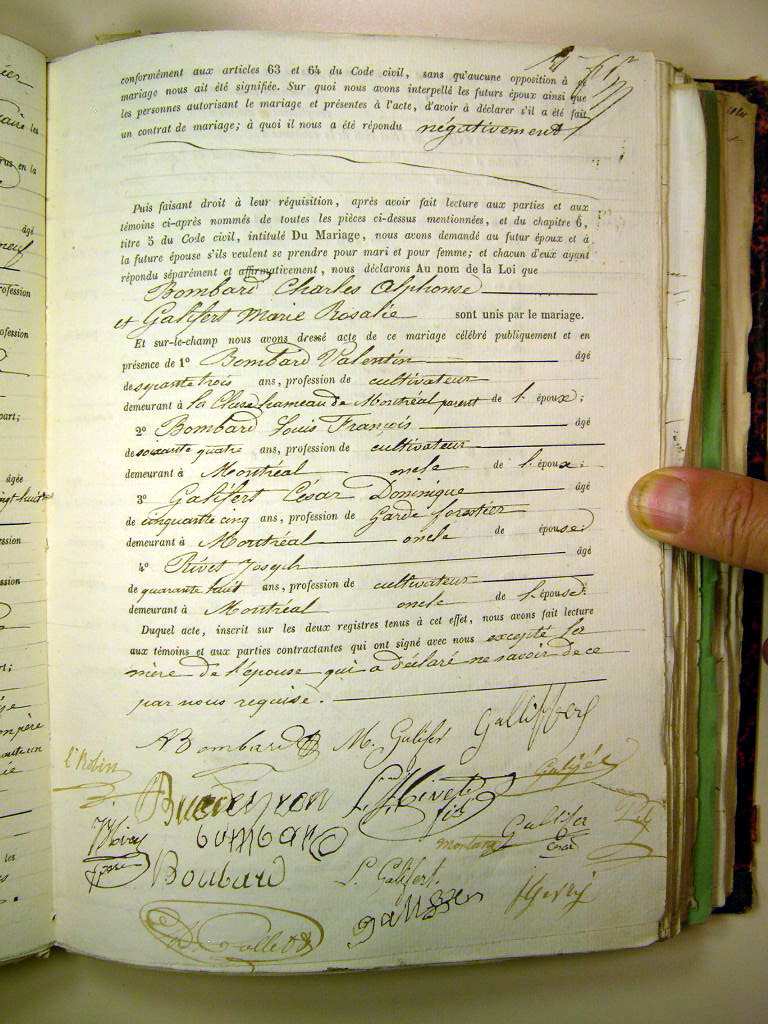 conformément aux articles 63 et 64 du Code civil, sans qu'aucune opposition à ce
mariage nous ait été signifiée. Sur quoi nous avons interpellé les futurs époux ainsi que
les personnes autorisant le mariage et présentes à l'acte, d'avoir à déclarer s'il a été fait
un contrat de mariage; à quoi il nous a été répondu négativement
Puis faisant droit à leur réquisition, après avoir fait lecture aux parties et aux
témoins ci-après nommés de toutes les pièces ci-dessus mentionnées, et du chapitre 6,
titre 5 du Code civil, intitulé Du Mariage, nous avons demandé au futur époux et à
la future épouse s'ils veulent se prendre pour mari et pour femme; et chacun d'eux ayant
répondu séparément et affirmativement, nous déclarons Au nom de la Loi que
Bombard Charles Alphonse
et Galifert Marie Rosalie sont unis par le mariage.
Et sur-le-champ nous avons dressé acte de ce mariage célébré publiquement et en
présence de 1º Bombard Valentin âgé
de soixante trois ans, profession de cultivateur
demeurant à la Cluse hameau de Montréal parent de l. époux;
2º Bombard Louis François âgé
de soixante quatre ans, profession de cultivateur
demeurant à Montréal oncle de l. époux;
3º Galifert César Dominique âgé
de cinquante cinq ans, profession de Garde forestier
demeurant à Montréal oncle de épouse;
4º Rivet Joseph âgé
de quarante huit ans, profession de cultivateur
demeurant à Montréal oncle de l. épouse.
Duquel acte, inscrit sur les deux registres tenus à cet effet, nous avons fait lecture
aux témoins et aux parties contractantes qui ont signé avec nous excepté la
mère de l'épouse qui a déclaré ne savoir de ce
par nous requise.
ABombard M. Galifer Galliffert
l. Robin
Bombard
Boubard L. Galifert